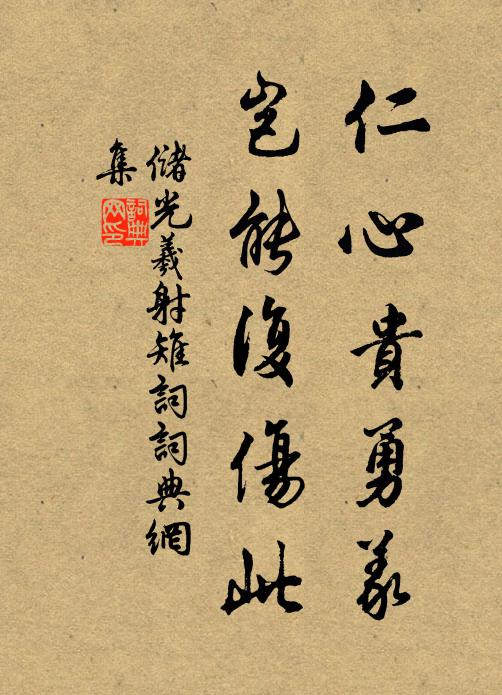 仁心貴勇義
豈能復傷此
儲光羲射雉詞詞典網
集
詞典網印